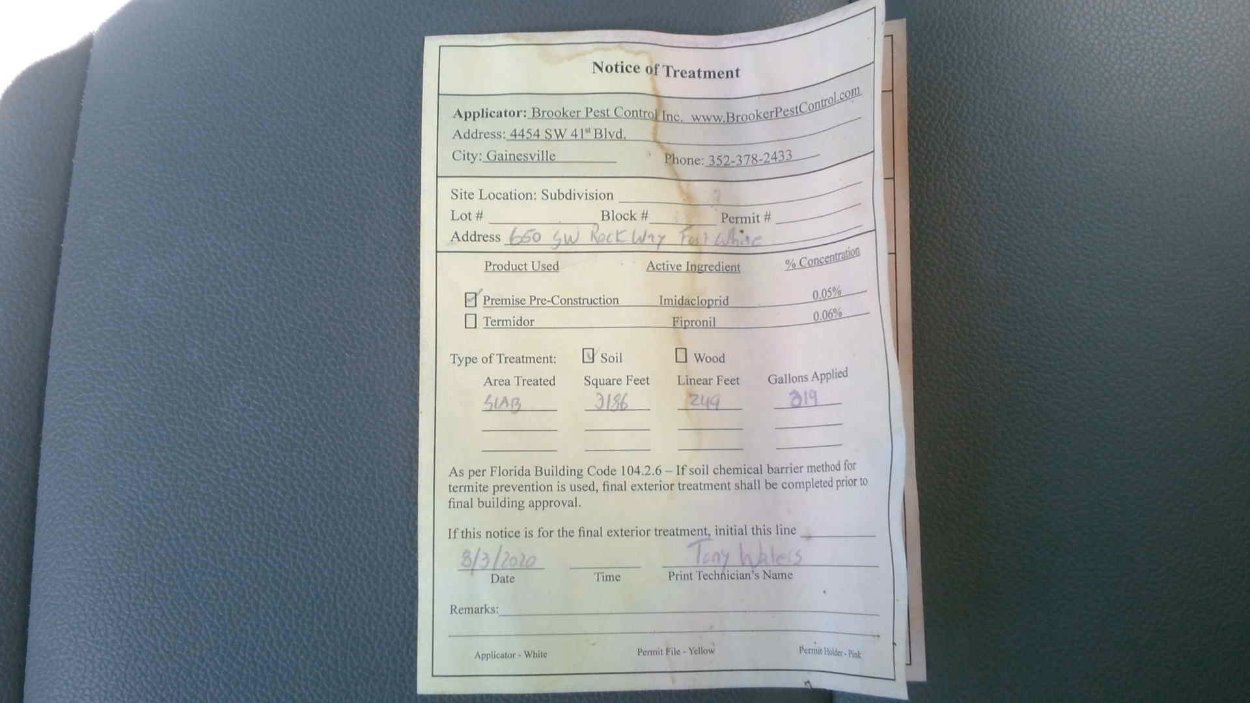 Notice of Treatment
Applicator: Brooker Pest Control Inc. www.BrookerPestControl.com
Address: 4454 SW 41st Blvd.
City: Gainesville Phone: 352-378-2433
Site Location: Subdivision
Lot # Block # Permit #
Address 650 SW Rock Way Fort White
Product Used Active Ingredient % Concentration
Premise Pre-Construction Imidacloprid 0.05%
Termidor Fipronil 0.06%
Type of Treatment: Soil Wood
Area Treated Square Feet Linear Feet Gallons Applied
SLAB 3186 249 319
As per Florida Building Code 104.2.6 – If soil chemical barrier method for
termite prevention is used, final exterior treatment shall be completed prior to
final building approval.
If this notice is for the final exterior treatment, initial this line
/3/2020 Tony
Date Time Print Technician's Name
Remarks:
Applicator - White Permit File - Yellow Permit Holder - Pink